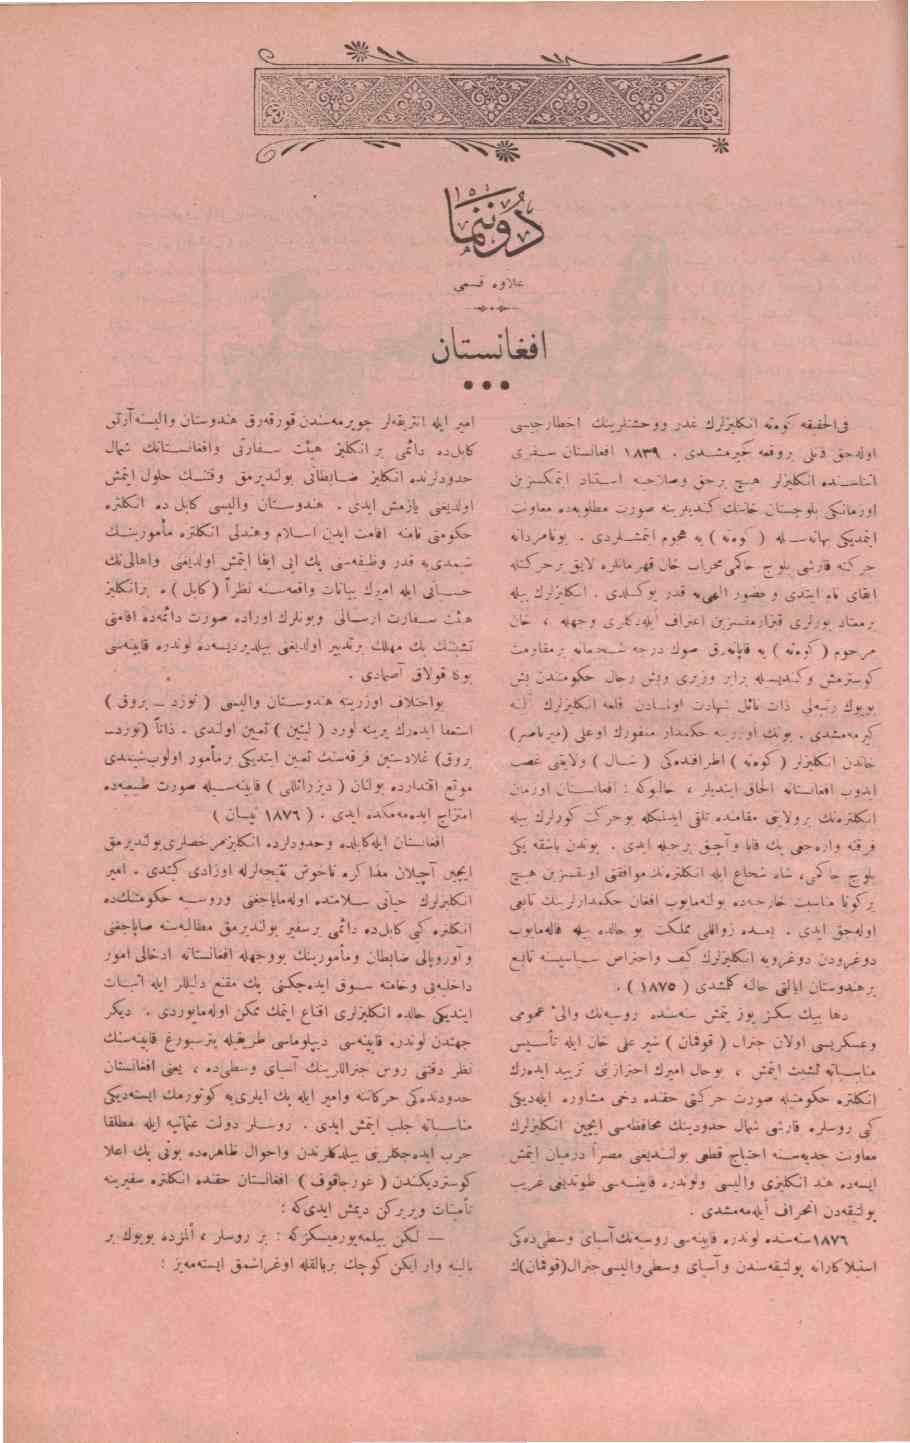 دوننما
علاوه قسمی
افغانستان
فی‌الحقیقه کوه‌ته انکلیزلرك غدر ووحشتلرینك اخطارجیسی
اوله‌جق قانلی بروقعه کچیرمشدی . ۱۸۳۹ افغانستان سفری
اثناسنده انکلیزلر هیچ برحق وصلاحیه استناد ایتمکسزین
اوزمانکی بلوچستان خاننك کندیلرینه صورت مطلوبه‌ده معاونت
ایتمدیکی بهانه‌سیله ( کوه‌ته ) یه هجوم ایتمشلردی . بونامردانه
حرکته قارشی بلوچ حاکمی محراب خان قهرمانلره لایق برحرکتله
ابقای نام ایتدی و حضور الهی‌یه قدر یوکسلدی . انکلیزلرك بیله
برمعتاد یوزلری قیزارمقسزین اعتراف ایله‌دکلری وجهله ، خان
مرحوم ( کوه‌ته ) یه قاپانه‌رق صوك درجه شجیعانه برمقاومت
کوسترمش وکندیسیله برابر وزیری وبش رجال حکومتدن بش
بویوك رتبه‌لی ذات نائل شهادت اولمادن قلعه انکلیزلرك الینه
کیرمه‌مشدی . بونك اوزرینه حکمدار متفورك اوغلی (میرناصر)
خاندن انکلیزلر ( کوه‌ته ) اطرافنده‌کی ( شال ) ولایتی غصب
ایدوب افغانستانه الحاق ایتدیلر ، حالبوکه : افغانستان اوزمان
انکلتره‌نك برولایتی مقامنده تلقی ایدلمکله بوحرکت کورلرك بیله
فرقنه واره‌جغی پك قابا وآچیق برحیله ایدی . بوندن باشقه یکی
بلوچ حاکمی، شاه شجاع ایله انکلتره‌نك موافقتی اولمقسزین هیچ
برکونا مناسبت خارجیه‌ده بولنه‌مایوب افغان حکمدارلرینك تابعی
اوله‌جق ایدی . بعده زواللی مملکت بو حالده بیله قاله‌مایوب
دوغرودن دوغرویه انکلیزلرك کیف واحتراص سیاسیسنه تابع
برهندوستان ایالتی حالنه کلمشدی ( ۱۸۷۵ ) .
دها بیك سکز یوز یتمش سنه‌سنده روسیه‌نك والئ عمومی
وعسکریسی اولان جنرال ( قوفمان ) شیر علی خان ایله تأسیس
مناسباته تشبث ایتمش ، بوحال امیرك احترازنی تزیید ایده‌رك
انکلتره حکومتیله صورت حرکتی حقنده دخی مشاوره ایله‌دیکی
کبی روسلره قارشی شمال حدودینك محافظه‌سی ایچین انکلیزلرك
معاونت جدیه‌سنه احتیاج قطعی بولندیغنی مصراً درمیان ایتمش
ایسه‌ده هند انکلیزی والیسی ولوندره قابینه‌سی طوتدیغی غریب
پولتیقه‌دن انحراف ایله‌مه‌مشدی .
۱۸۷۶ سنه‌سنده لوندره قابینه‌سی روسیه‌نك آسیای وسطی‌ده‌کی
استیلاکارانه پولتیقه‌سندن وآسیای وسطی والیسی جنرال(قوفمان)ك
امیر ایله انتریقه‌لر چویرمه‌سندن قورقه‌رق هندوستان والیسنه آرتق
کابل‌ده دائمی بر انکلیز هیئت سفارتی وافغانستانك شمال
حدودلرنده انکلیز ضابطانی بولندیرمق وقتنك حلول ایتمش
اولدیغنی یازمش ایدی . هندوستان والیسی کابل ده انکلتره
حکومتی نامنه اقامت ایدن اسلام وهندلی انکلتره مأمورینك
شیمدی‌یه قدر وظیفه‌سنی پك ایی ایفا ایتمش اولدیغنی واهالی‌نك
حسیاتی ایله امیرك بیانات واقعه‌سنه نظراً ( کابل ) ه برانکلیز
هیئت سفارت ارسالی وبونلرك اوراده صورت دائمه‌ده اقامتی
تشبثنك پك مهلك برتدبیر اولدیغنی بیلدیردیسه‌ده لوندره قابینه‌سی
بوکا قولاق آصمادی .
بواختلاف اوزرینه هندوستان والیسی ( نورد ــ بروق )
استعفا ایده‌رك یرینه لورد ( لیتن ) تعیین اولندی . ذاتاً (نورد ــ
بروق) غلادستون فرقه‌سنك تعیین ایتدیکی برمأمور اولوب شیمدی
موقع اقتدارده بولنان ( دیزرائللی ) قابینه‌سیله صورت طبیعیه‌ده
امتزاج ایده‌مه‌مکده ایدی . ( ۱۸۷۶ نیسان )
افغانستان ایله کابلده وحدودلرده انکلیز مرخصلری بولندیرمق
ایچین آچیلان مذاکره ناخوش نتیجه‌لرله اوزادی کیتدی . امیر
انکلیزلرك حیاتی سلامتده اوله‌مایاجغنی وروسیه حکومتنك‌ده
انکلتره کبی کابل‌ده دائمی برسفیر بولندیرمق مطالبه‌سنه صاپاجغنی
وآوروپالی ضابطان ومأمورینك بووجهله افغانستانه ادخالی امور
داخلیه‌نی وخامته سوق ایده‌جکنی پك مقنع دلیللر ایله اثبات
ایتدیکی حالده انکلیزلری اقناع ایتمك ممکن اوله‌مایوردی . دیکر
جهتدن لوندره قابینه‌سی دیپلوماسی طریقیله پترسبورغ قابینه‌سنك
نظر دقتنی روس جنراللرینك آسیای وسطی‌ده ، یعنی افغانستان
حدودنده‌کی حرکاتنه وامیر ایله پك ایلری‌یه کوتورمك ایسته‌دیکی
مناسباته جلب ایتمش ایدی . روسلر دولت عثمانیه ایله مطلقا
حرب ایده‌جکلرینی بیلدکلرندن واحوال ظاهره‌ده بونی پك اعلا
کوستردیکندن ( غورچاقوف ) افغانستان حقنده انکلتره سفیرینه
تأمینات ویررکن دیمش ایدی‌که :
— لکن بیلمه‌یورمیسکزکه : بز روسلر ، المزده بویوك بر
بالینه وار ایکن کوچك بربالقله اوغراشمق ایسته‌مه‌یز :